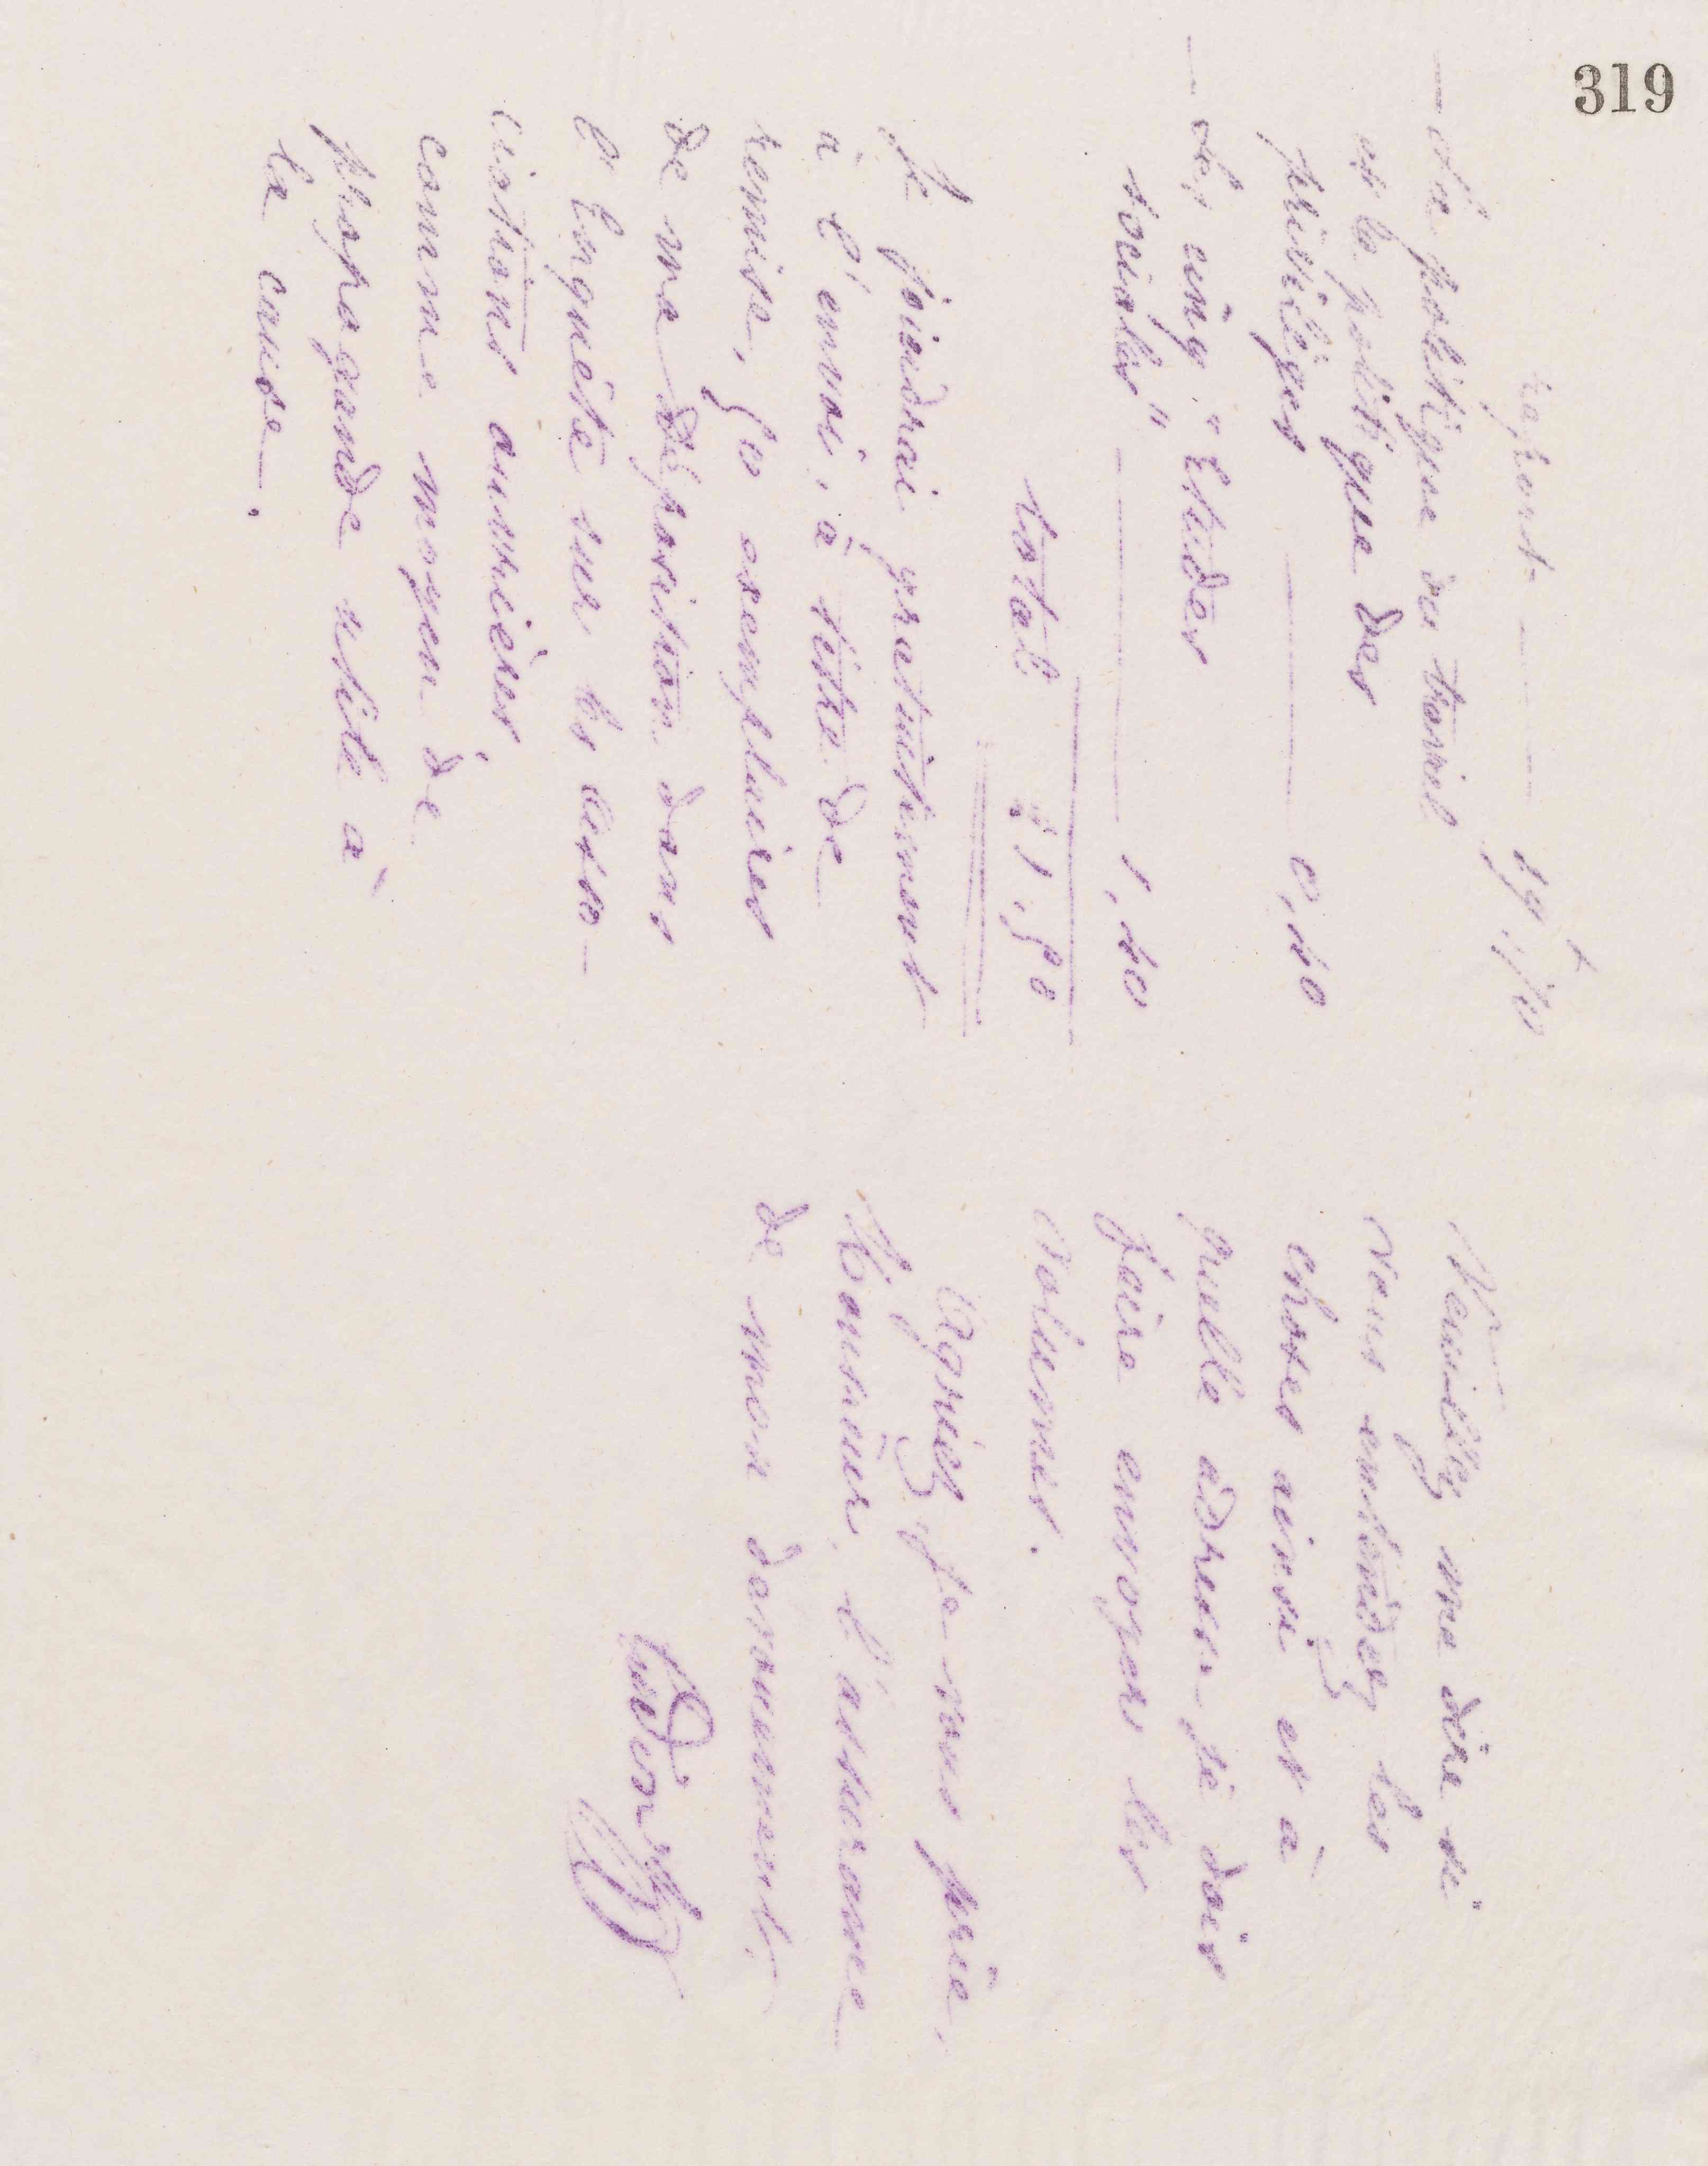 319
report 29f,70
— La politique du travail
et la politique des
privilèges 0,40
— des cinq "Etudes
sociales" 1,40
total 31,50
Je joindrai gratuitement
à l'envoi, à titre de
remise, 50 exemplaires
de ma déposition dans
l'Enquête sur les asso-
ciations ouvrières
comme moyen de
propagande utile à
la cause.
Veuillez me dire si
vous entendez les
choses ainsi et à
quelle adresse je dois
faire envoyer les
volumes.
Agréez je vous prie,
Monsieur, l'assurance
de mon dévouement.
Godin